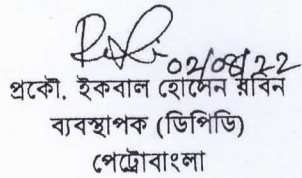 02/08/22
প্রকৌ. ইকবাল হোসেন রবিন
ব্যবস্থাপক (ডিপিডি)
পেট্রোবাংলা